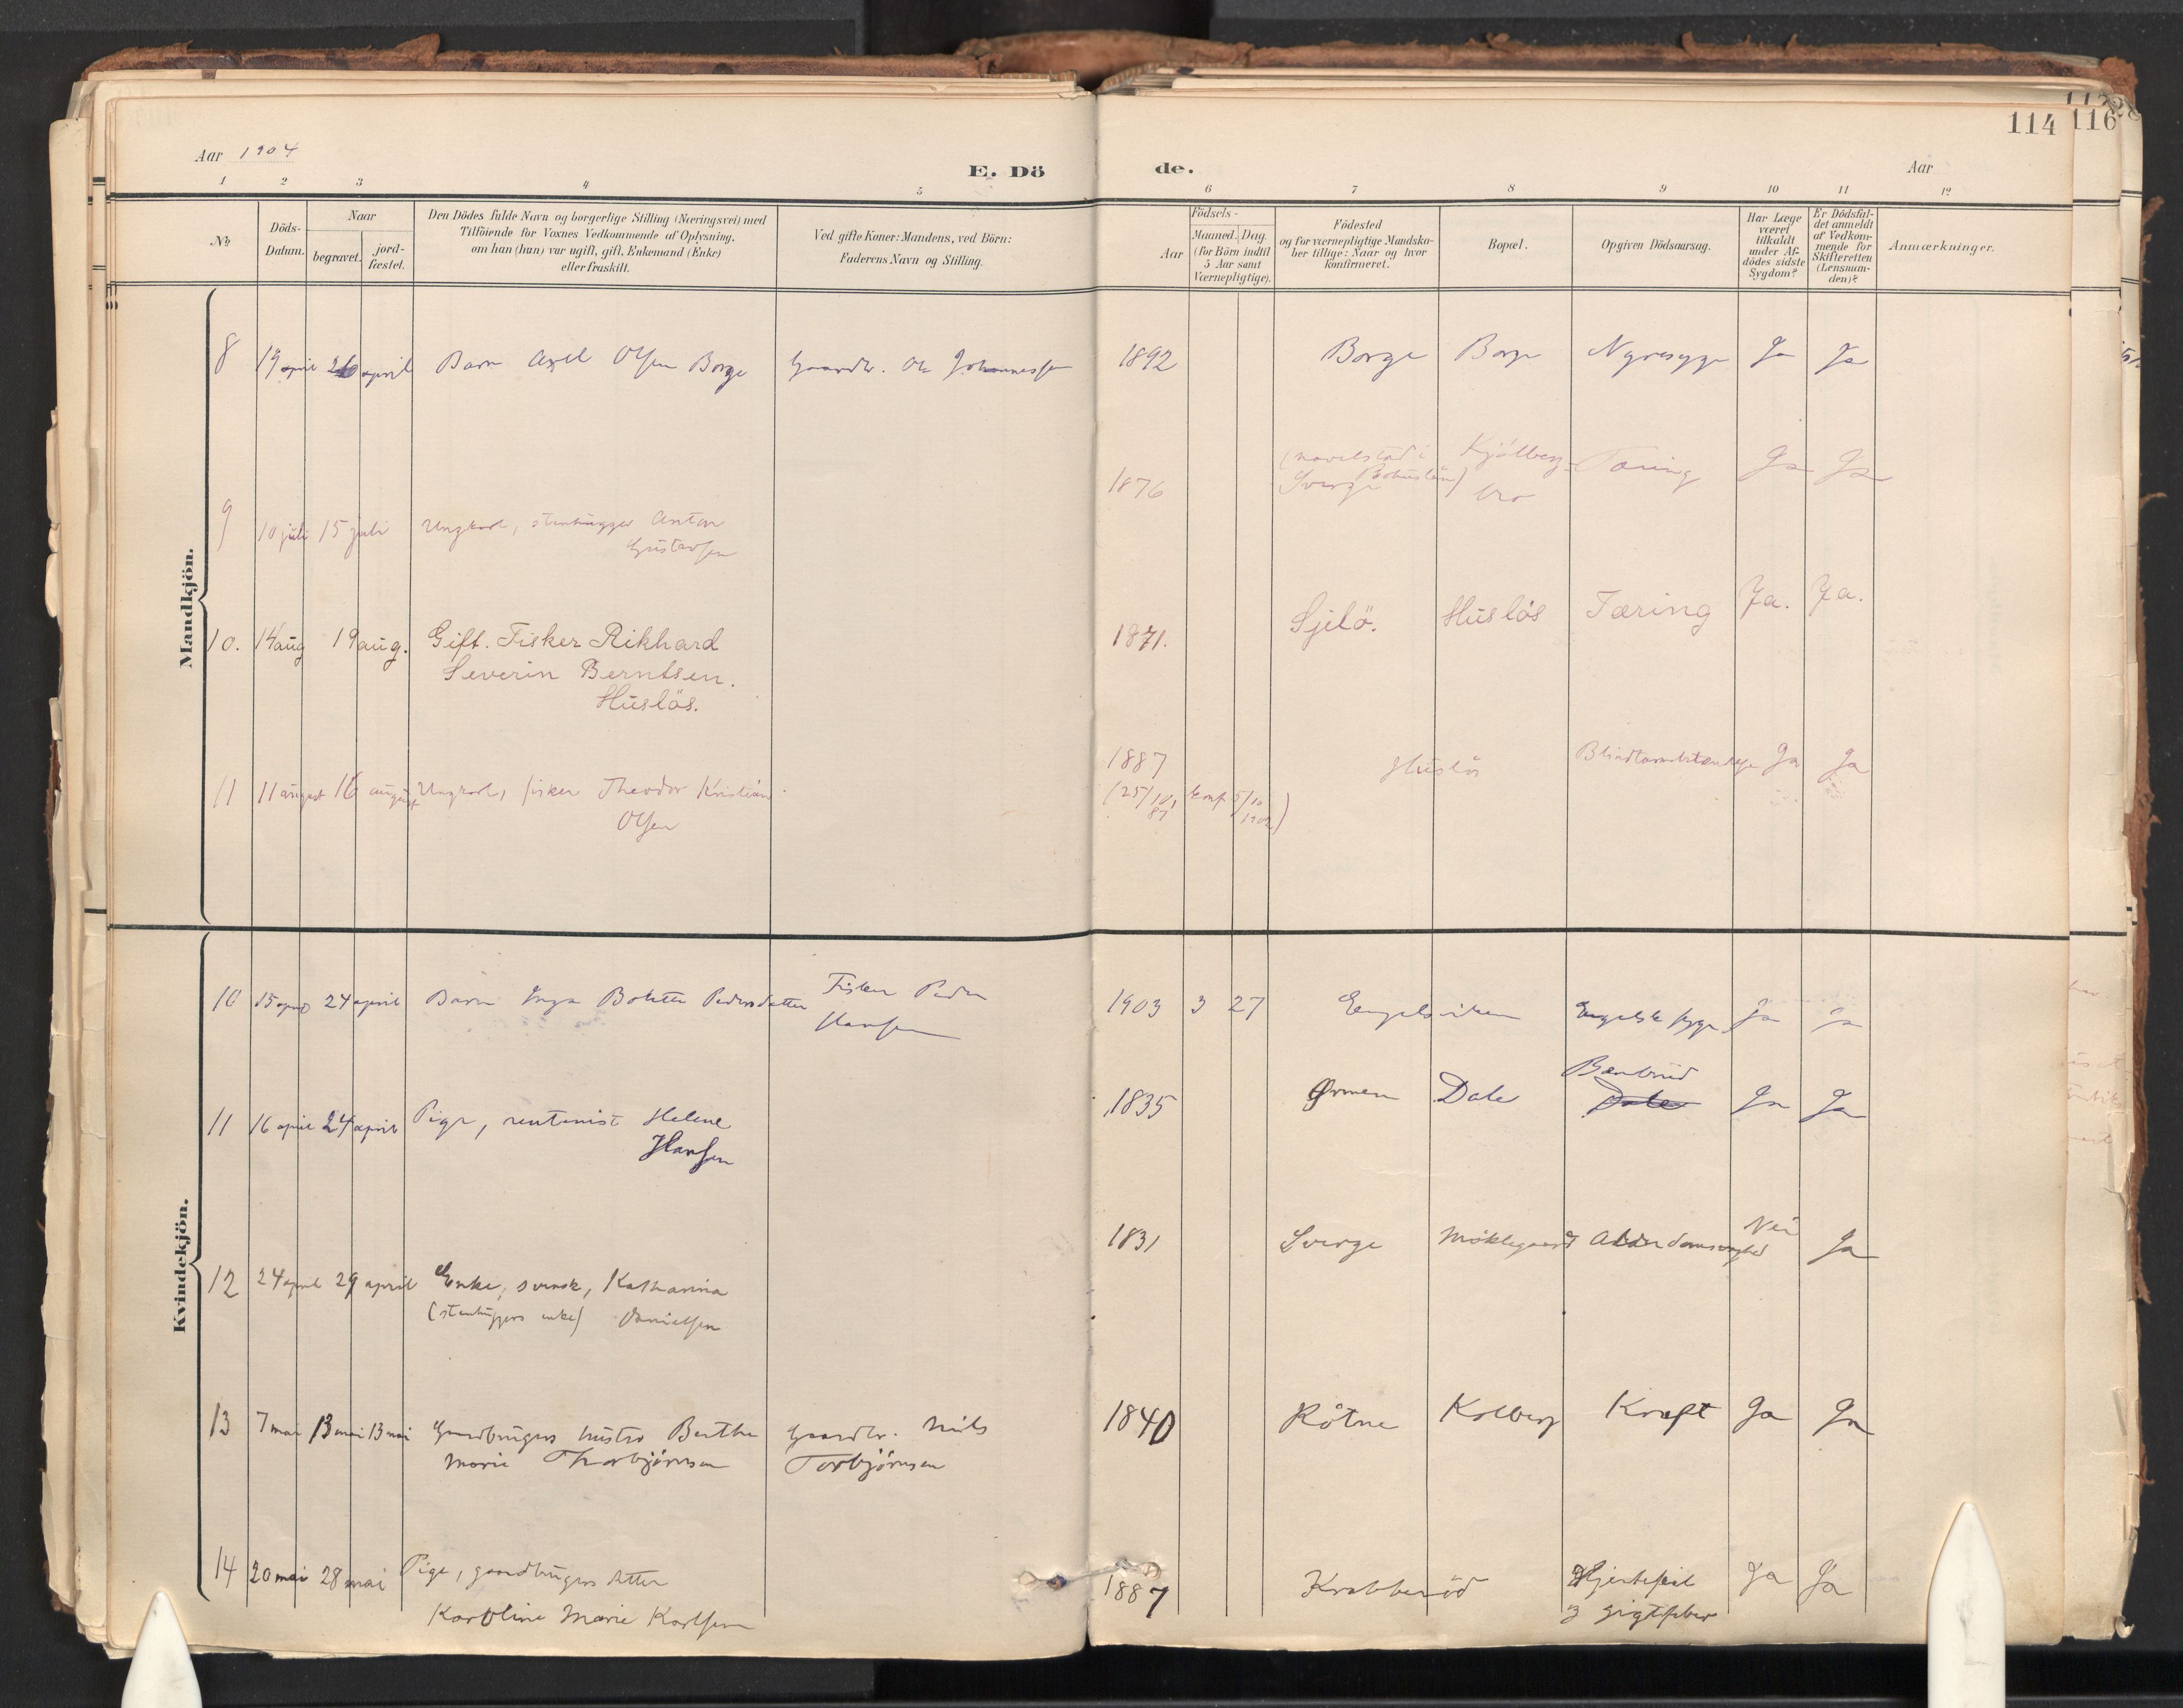 114 116
Aar 1904
E. Dö de.
Aar
1 2 3 4 5 6 7 8 9 10 11 12
No
Döds-
Datum.
Naar
begravet.
jord-
fæstet.
Den Dödes fulde Navn og borgerlige Stilling (Næringsvei) med
Tilföiende for Voxnes Vedkommende af Oplysning,
om han (hun) var ugift, gift, Enkemand (Enke)
eller fraskilt.
Ved gifte Koner: Mandens, ved Börn:
Faderens Navn og Stilling.
Aar
Födsels-
Maaned. Dag.
(for Börn indtil
5 Aar samt
Værnepligtige).
Födested
og for værnepligtige Mandska-
ber tillige: Naar og hvor
konfirmeret.
Bopæl.
Opgiven Dödsaarsag.
Har Læge
været
tilkaldt
under Af-
dödes sidste
Sygdom?
Er Dödsfal-
det anmeldt
af Vedkom-
mende for
Skifteretten
(Lensman-
den)?
Anmærkninger.
Mandkjön.
8 19 april april Barn Axel Olsen Borge Gaardbr. Ole Johannessen 1892 Borge Borge Nyresyge Ja Ja
9 10 juli 15 juli Ungkarl, stenhugger Anton
Gustavsen
1876
Sverge Bohuslän)
Kjölberg-
bro
Tæring Ja Ja
10. 14 aug 19 aug. Gift. Fisker Rikhard
Severin Berntsen.
Huslös.
1871. Sjelö. Huslös Tæring Ja. Ja.
11 11 august 16 august Ungkarl, fisker Theodor Kristian
Olsen
1887
(25/10, 87 konf 5/10 1902)
Huslös Ja Ja
Kvindekjön.
10 15 april 24 april Barn Inga Bolette Pedersdatter Fisker Peder
Hansen
1903 3 27 Engelsviken Engelsk syge Ja Ja
11 16 april 24 april Pige, rentenist Helene
Hansen
1835 Ørmen Dale Benbrud
Dale
Ja Ja
12 24 april 29 april Enke, svensk, Katharina
(stenhuggers enke) Danielsen
1831 Sverge Moklegaard Alderdomssvaghed Nei Ja
13 7 mai 13 mai 13 mai Gaardbrugers hustro Berthe
Marie Thorbjörnsen
Gaardbr. Nils
Torbjörnsen
1840 Rötne Kolberg Kræft Ja Ja
14 20 mai 28 mai Pige, gaardbrugers datter
Karoline Marie Karlsen
1887 Krabberöd Hjertefeil
og gigtfeber
Ja Ja